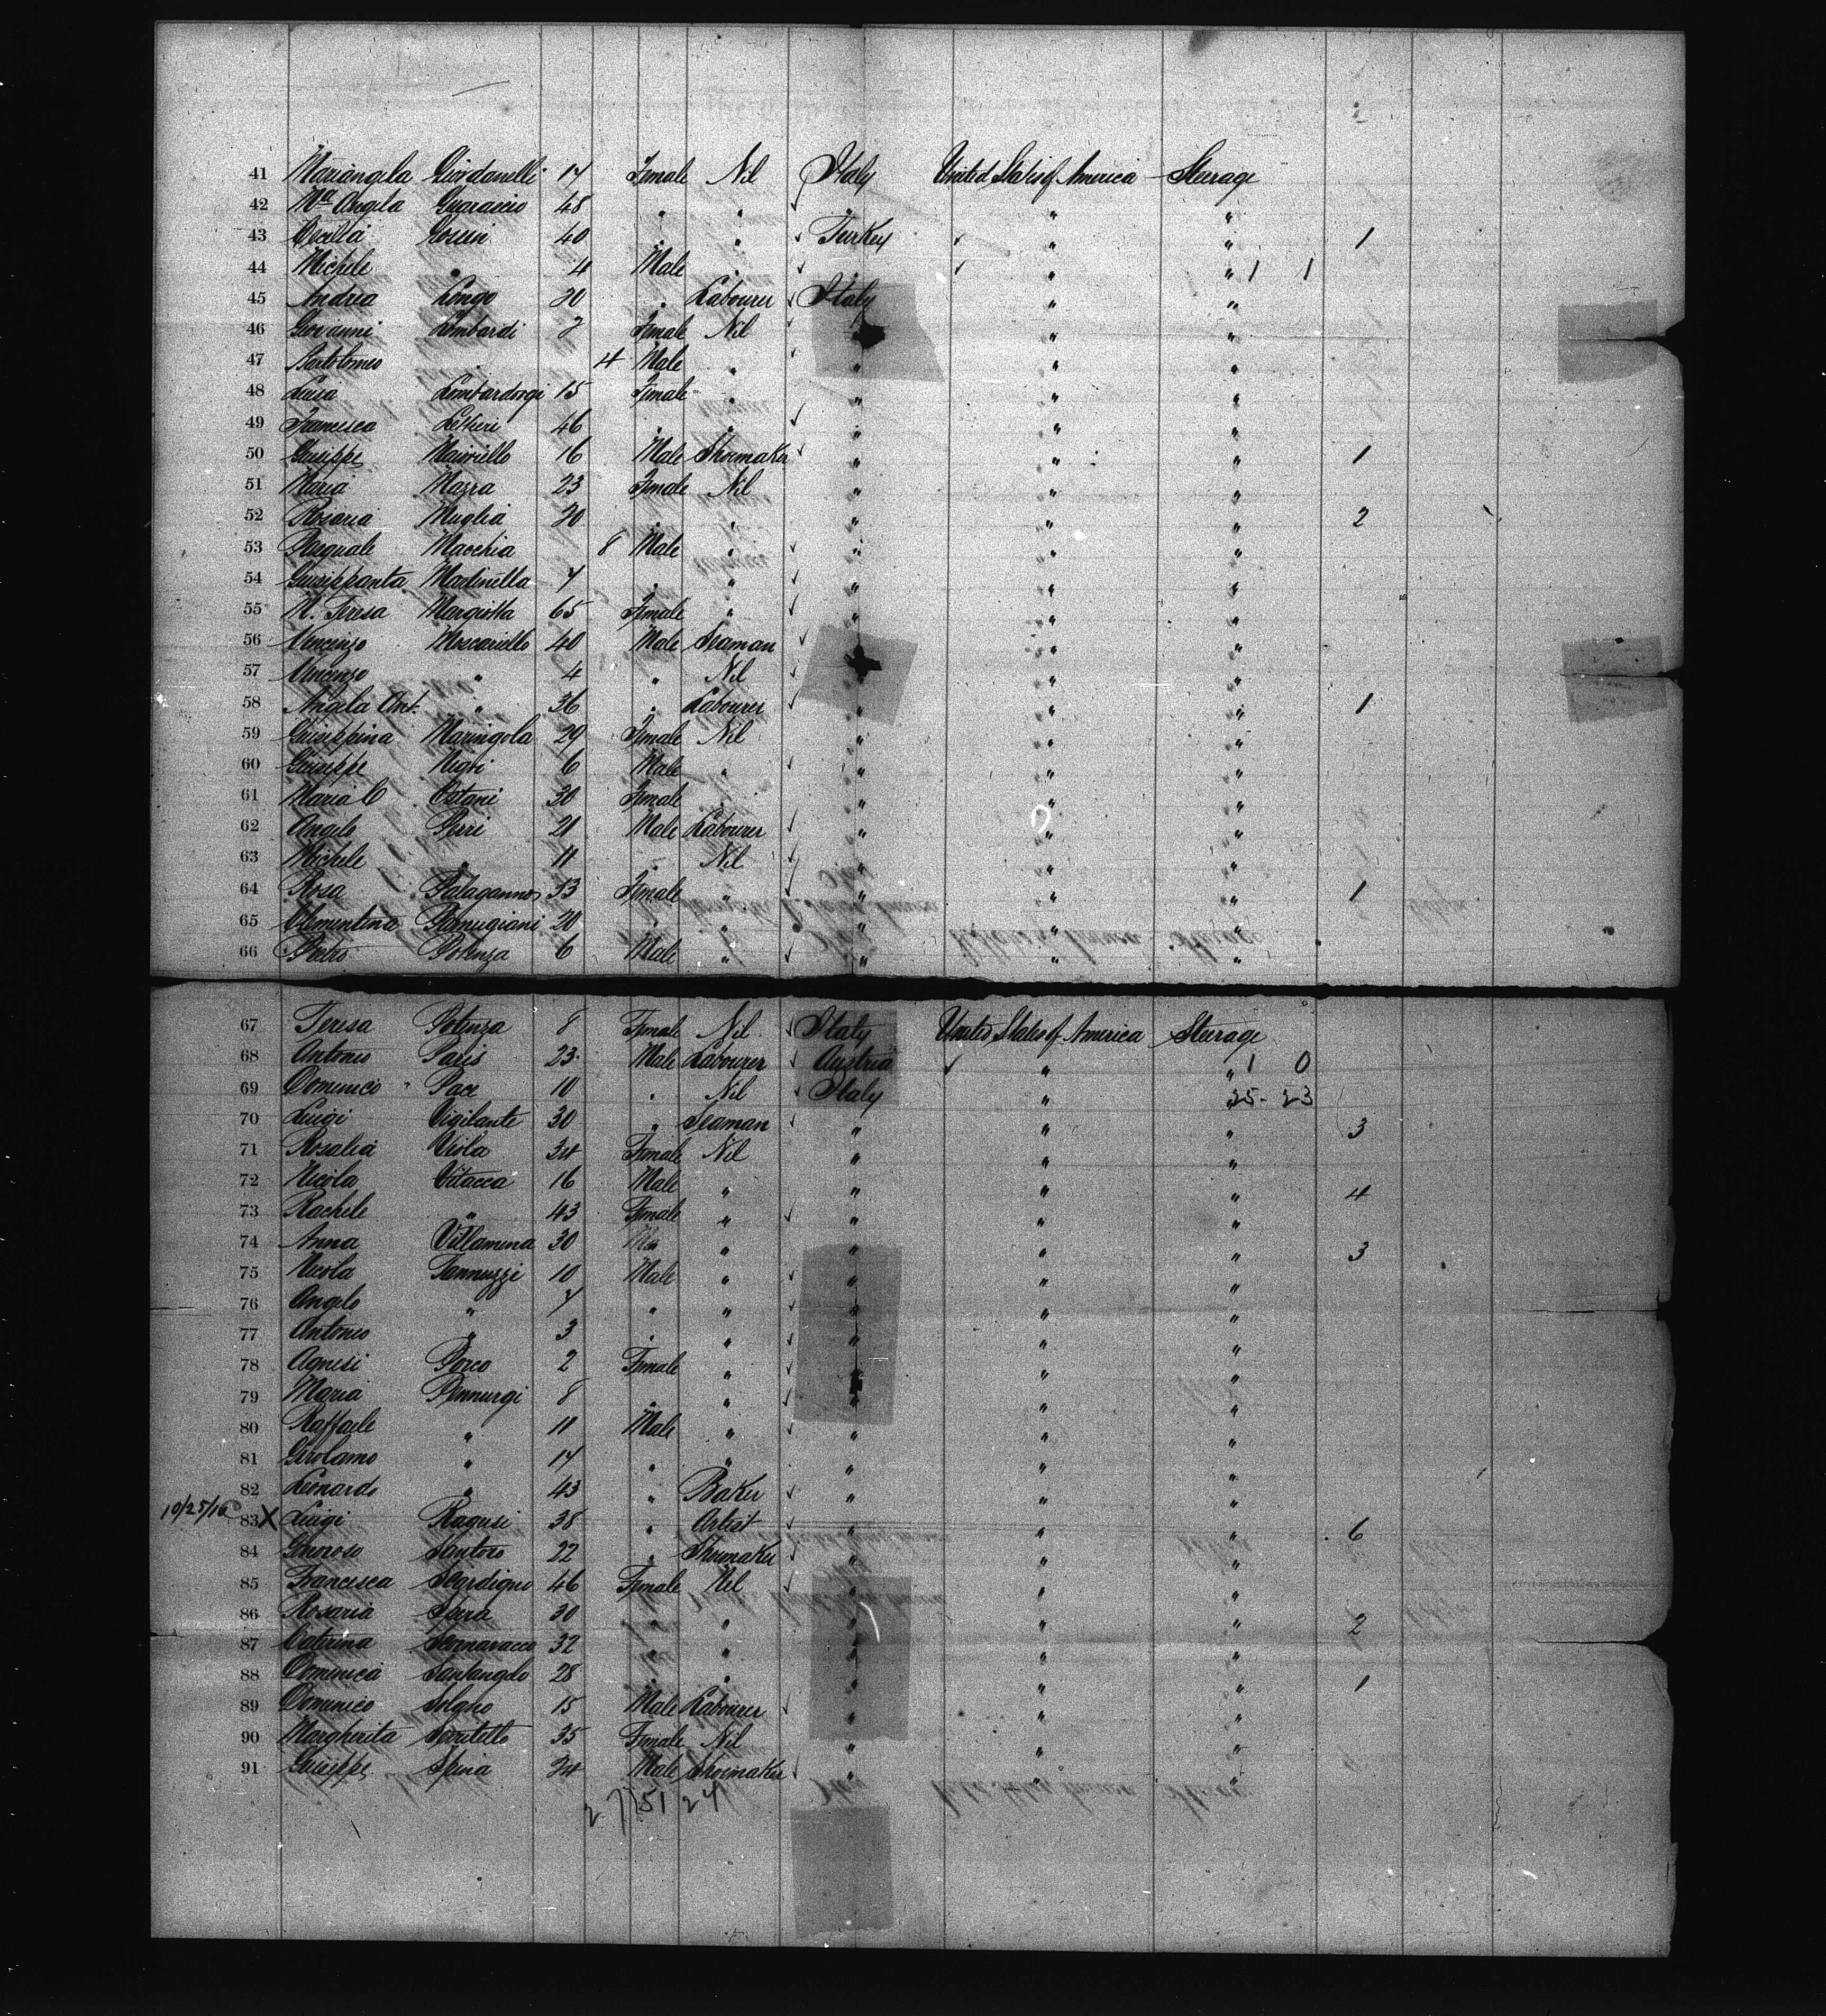 41 Mariangela Giordanelli 14 Female Nil Italy United States of America Steerage
42 Mª Angela Guarascio 48 " " ✓ " " "
43 Cecilia 40 " " ✓ Turkey ✓ " " 1
44 Michele " 4 Male " ✓ ✓ " " 1 1
45 Andrea Longo 20 " Labourer ✓ Italy " "
46 Giovanni Lombardi 7 Female Nil ✓ " "
47 Bartolomeo " 4 Male " ✓ " " "
48 Luisa Lombardogi 15 Female " " " "
49 Francesca Lettieri 46 " " ✓ " " "
50 Giuseppe Maiviello 16 Male Shoemaker ✓ " " " 1
51 Maria Mazza 23 Female Nil " " "
52 Rosaria Muglia 20 " " " " " 2
53 Pasquale Macchia 8 Male " ✓ " " "
54 Martinella 7 " " ✓ " " "
55 M. Teresa Margiotta 65 Female " ✓ " " "
56 Vincenzo Moscariello 40 Male Seaman ✓ " "
57 Vincenzo " 4 " Nil ✓ " "
58 Angela Ant. " 36 " Labourer ✓ " " " 1
59 Giuseppina Maringola 29 Female Nil " " "
60 Giuseppe Nigri 6 Male " ✓ " " "
61 Maria C Ortani 30 Female " " " "
62 Angelo Perri 21 Male Labourer ✓ " " "
63 Michele " 11 " Nil ✓ " " "
64 Rosa Palaganno 53 Female " ✓ " " " 1
65 Clementina Parmigiani 20 " " " " "
66 Pietro Potenza 6 Male " ✓ " " "
67 Teresa Potenza 8 Female Nil ✓ Italy United States of America Steerage
68 Antonio Paris 23 Male Labourer ✓ Austria ✓ " " 1 0
69 Domenico Pace 10 " Nil ✓ Italy " " 25 - 23
70 Luigi Vigilante 30 " Seaman ✓ " " " 3
71 Rosalia Viola 34 Female Nil " " "
72 Nicola Vitacca 16 Male " " " " 4
73 Rachele " 43 Female " ✓ " " "
74 Anna Villamena 30 " " " " 3
75 Nicola Iannuzzi 10 Male " ✓ " " "
76 Angelo " 7 " " ✓ " " "
77 Antonio " 3 " " ✓ " " "
78 Agnesi Porco 2 Female " ✓ " "
79 Maria Pennurgi 8 " " ✓ " " "
80 Raffaele " 11 Male " ✓ " " "
81 Girolamo " 14 " " " " "
82 Leonardo " 43 " Baker ✓ " " "
10/25/16 83 X Luigi Ragusi 38 " Artist ✓ " " " 6
84 Santoro 22 " Shoemaker ✓ " " "
85 Francesca Scardigno 46 Female Nil ✓ " " "
86 Rosaria Spera 30 " " " " " 2
87 Caterina 32 " " " " "
88 Domenica Santangelo 28 " " " " " 1
89 Domenico 15 Male Labourer ✓ " " "
90 Margherita Serritello 35 Female Nil " " "
91 Giuseppe Spina 24 Male Shoemaker ✓ " " "
2 7 51 24